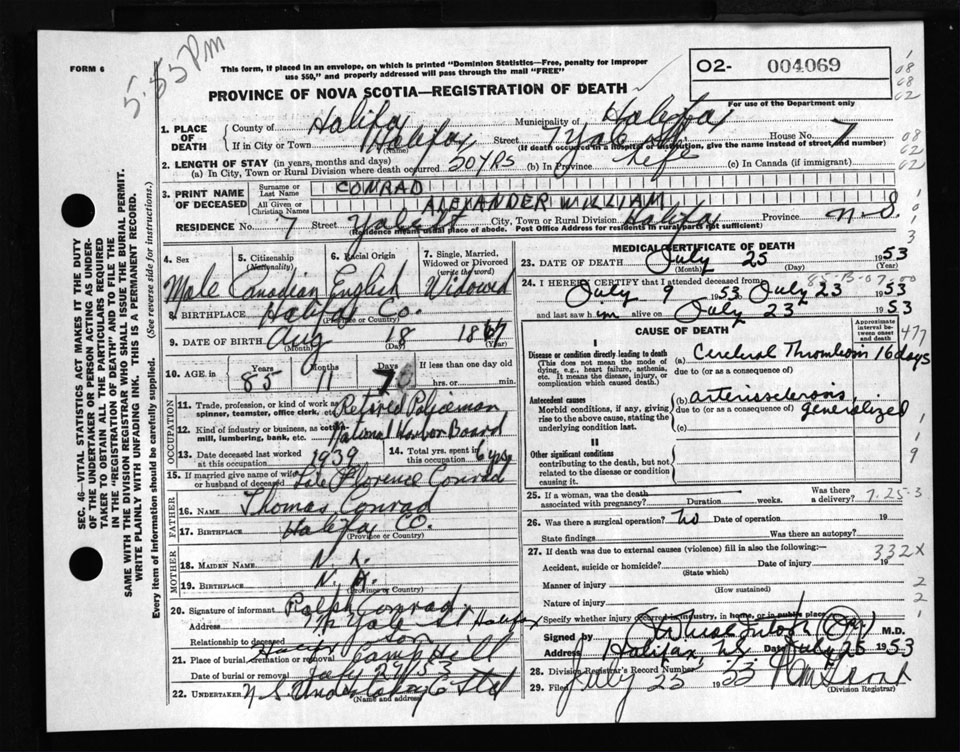 5.53 PM
FORM 6
This form, if placed in an envelope, on which is printed "Dominion Statistics—Free, penalty for improper use $50," and properly addressed will pass through the mail "FREE"
PROVINCE OF NOVA SCOTIA—REGISTRATION OF DEATH
O2- 004069
For use of the Department only
1. PLACE OF DEATH
County of Halifax Municipality of Halifax
If in City or Town Halifax (Name) Street 7 Yale St. House No. 7
(If death occurred in a hospital or institution, give the name instead of street and number)
2. LENGTH OF STAY (in years, months and days)
(a) In City, Town or Rural Division where death occurred 50 YRS (b) In Province life (c) In Canada (if immigrant)
3. PRINT NAME OF DECEASED
Surname or Last Name CONRAD
All Given or Christian Names ALEXANDER WILLIAM
RESIDENCE No. 7 Street Yale St City, Town or Rural Division Halifax Province N.S.
(Residence means usual place of abode. Post Office Address for residents in rural parts not sufficient)
4. Sex Male
5. Citizenship (Nationality) Canadian
6. Racial Origin English
7. Single, Married, Widowed or Divorced (write the word) Widowed
8. BIRTHPLACE Halifax Co. (Province or Country)
9. DATE OF BIRTH Aug (Month) 18 (Day) 1867 (Year)
10. AGE: 85 Years 11 Months 7 Days If less than one day old hrs. or min.
OCCUPATION
11. Trade, profession, or kind of work as spinner, teamster, office clerk, Retired Policeman
12. Kind of industry or business, as cotton-mill, lumbering, bank, etc. National Harbor Board
13. Date deceased last worked at this occupation 1939
14. Total yrs. spent in this occupation 6 yrs
15. If married give name of wife or husband of deceased Late Florence Conrad
FATHER
16. Name Thomas Conrad
17. Birthplace Halifax Co. (Province or Country)
MOTHER
18. Maiden Name N. K.
19. Birthplace N. K. (Province or Country)
20. Signature of informant Ralph Conrad
Address 7 Yale St Halifax
Relationship to deceased son
21. Place of burial, cremation or removal Halifax Camp Hill
Date of burial or removal July 27/53
22. Undertaker N.S. Undertaking Co Ltd
(Name and address)
MEDICAL CERTIFICATE OF DEATH
23. DATE OF DEATH July (Month) 25 (Day) 1953 (Year)
24. I HEREBY CERTIFY that I attended deceased from
July 9 1953 July 23 1953
and last saw him alive on July 23 1953
CAUSE OF DEATH
Approximate interval between onset and death
I
Disease or condition directly leading to death
This does not mean the mode of dying, e.g., heart failure, asthenia, etc. It means the disease, injury, or complication which caused death.
(a) Cerebral Thrombosis 16 days
due to (or as a consequence of)
Antecedent causes
Morbid conditions, if any, giving rise to the above cause, stating the underlying condition last.
(b) arteriosclerosis, generalized
due to (or as a consequence of)
(c)
II
Other significant conditions
contributing to the death, but not related to the disease or condition causing it.
477
25. If a woman, was the death associated with pregnancy? Duration weeks. Was there a delivery?
7-25-3
26. Was there a surgical operation? no Date of operation 19
State findings Was there an autopsy?
27. If death was due to external causes (violence) fill in also the following:— 332X
Accident, suicide or homicide? (State which) Date of injury 19
Manner of injury (How sustained) 2
Nature of injury 2
Specify whether injury occurred in industry, in home, or in public place
Signed by M.D.
Address Halifax NS Date July 25 1953
28. Division Registrar's Record Number
29. Filed July 25 1953
(Division Registrar)
SEC. 46—VITAL STATISTICS ACT MAKES IT THE DUTY OF THE UNDERTAKER OR PERSON ACTING AS UNDERTAKER TO OBTAIN ALL THE PARTICULARS REQUIRED IN THE "REGISTRATION OF DEATH" AND TO FILE THE SAME WITH THE DIVISION REGISTRAR WHO SHALL ISSUE THE BURIAL PERMIT.
WRITE PLAINLY WITH UNFADING INK. THIS IS A PERMANENT RECORD.
Every item of information should be carefully supplied. (See reverse side for instructions.)